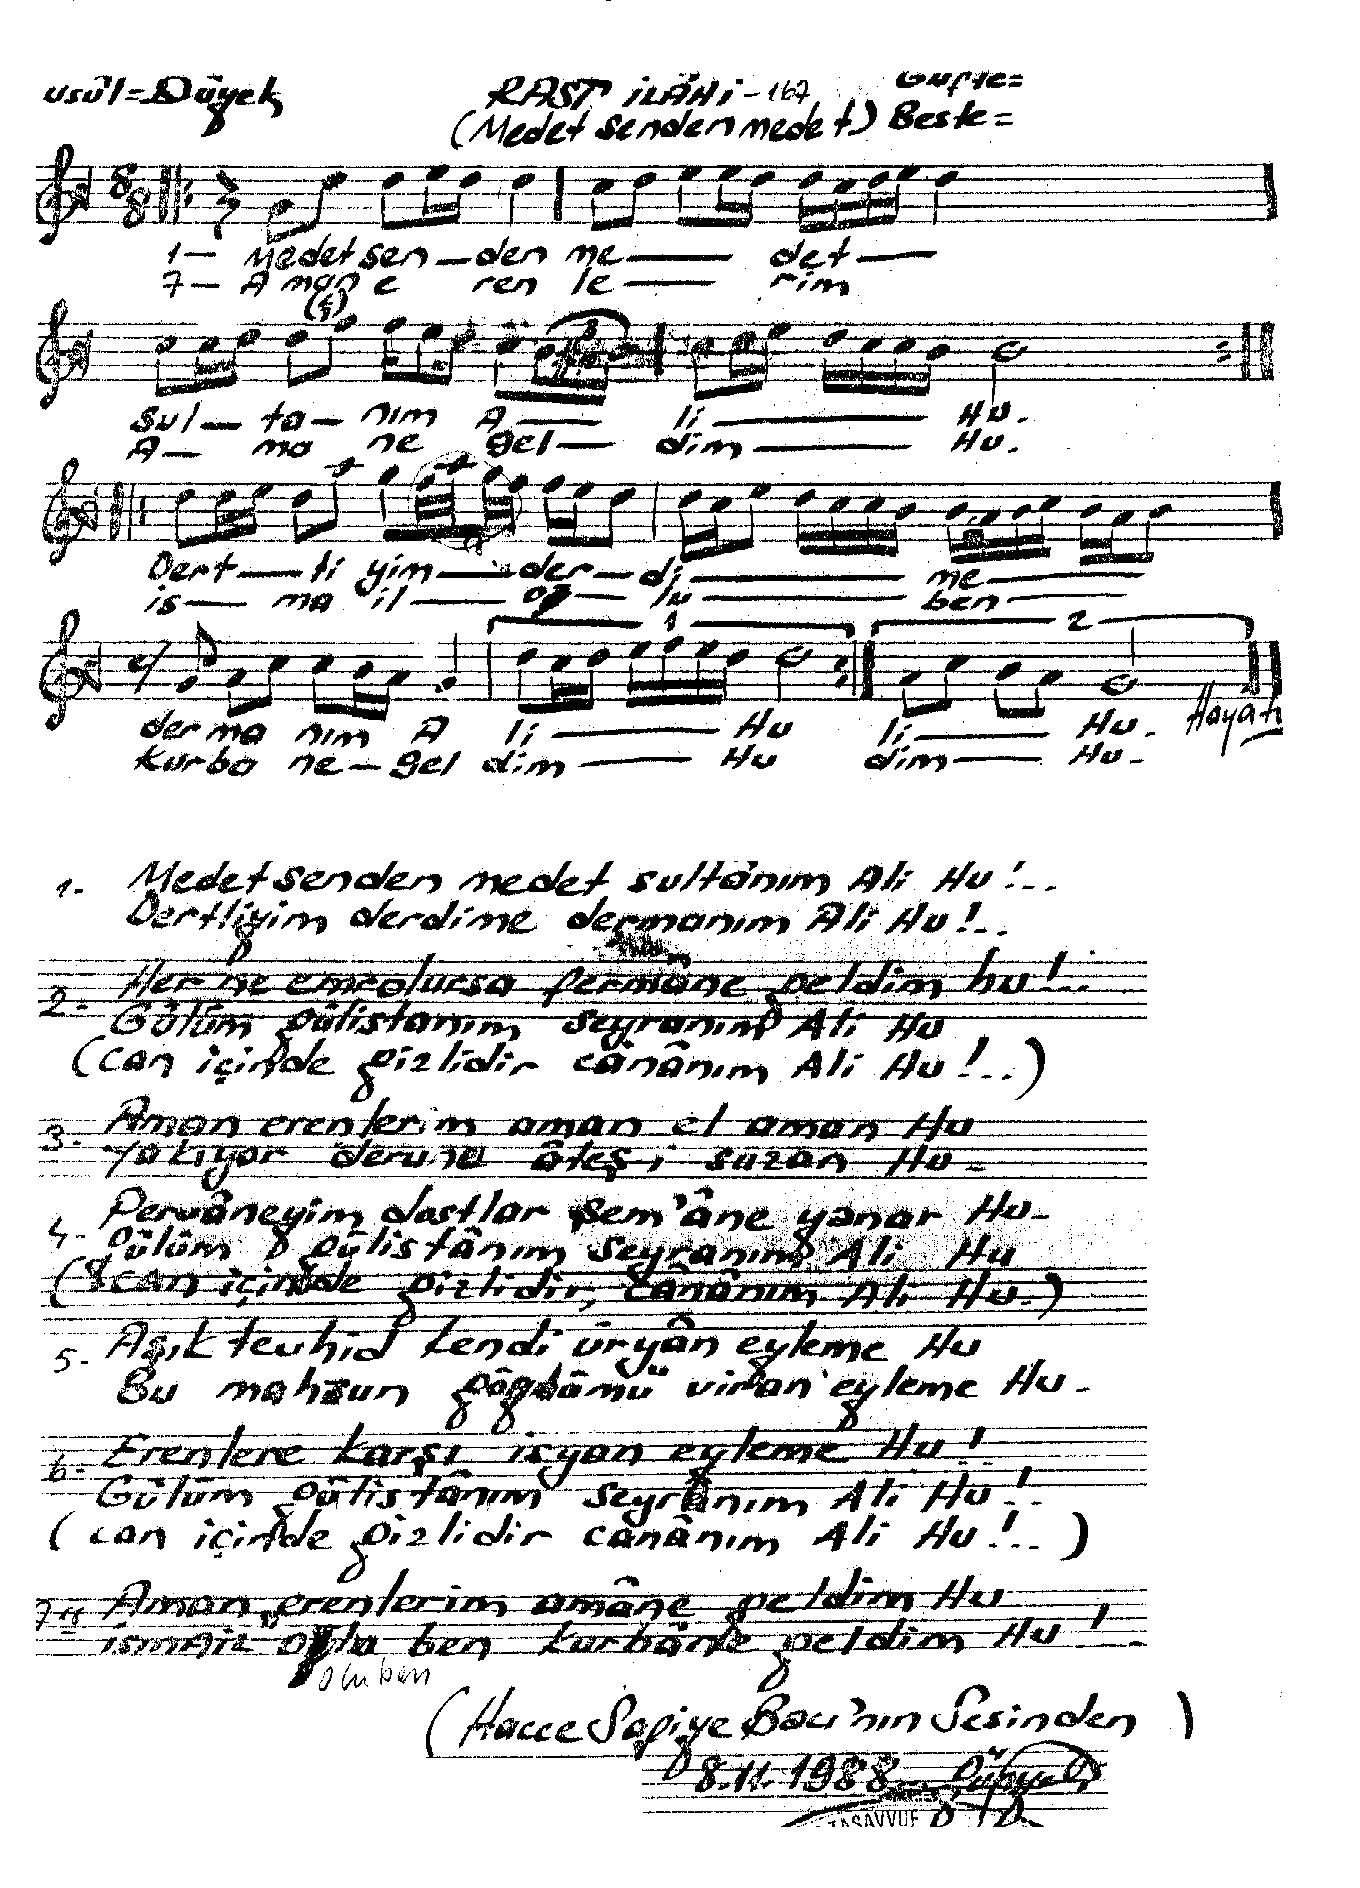 usûl=Düyek
RAST İLÂHİ-167
Güfte=
(Medet senden medet) Beste=
8
8
1— Medet sen—den me— det—
7— A man e ren le— rim
sul— ta— nım A— li— Hu.
A— ma ne gel— dim— Hu.
Dert— li yim— der— di— me—
is— ma il— oğ— lu— ben—
1 2
der ma nım A li— Hu li— Hu.
Kurba ne—gel dim— Hu dim— Hu.
1- Medet senden medet sultânım Ali Hu!..
Dertliyim derdime dermanım Ali Hu!..
2- Her ne emrolursa fermâne geldim hu!...
Gülüm gülistanım seyranım Ali Hu
(Can içinde gizlidir cânânım Ali Hu!..)
3- Aman erenlerim aman el aman Hu
Yakıyor deruna âteş i suzan Hu-
4- Pervâneyim dostlar şem'âne yanar Hu-
gülüm gülistânım seyranım Ali Hu
(Can içinde gizlidir, cânânım Ali Hu.)
5- Aşık tevhid kendi üryân eyleme Hu
Bu mahzun gönlümü viran eyleme Hu.
6- Erenlere karşı isyan eyleme Hu!
Gülüm gülistânım seyrânım Ali Hu!..
(can içinde gizlidir cânânım Ali Hu!..)
7- Aman erenlerim amâne geldim Hu
İsmail oğlu ben kurbâne geldim Hu!..
(Hacce Safiye Bacı'nın Sesinden)
8.11.1988
TASAVVUF